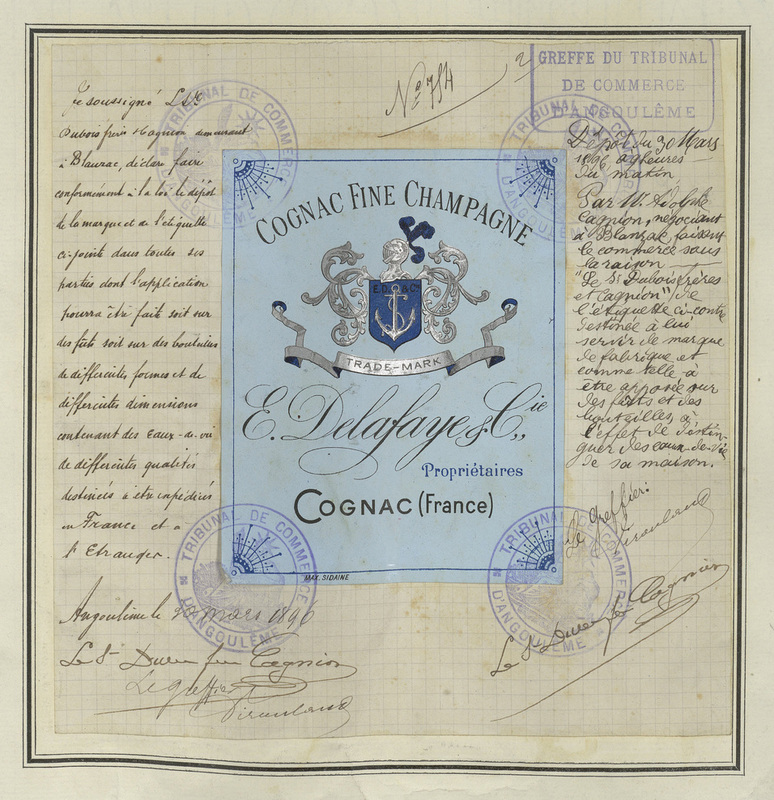 Nº 754
2
GREFFE DU TRIBUNAL
DE COMMERCE
D'ANGOULÊME
Je soussigné
Dubois frères & Cagnion demeurant
à Blanzac, déclare faire
conformément à la loi le dépôt
de la marque et de l'étiquette
ci-jointe dans toutes ses
parties dont l'application
pourra être faite soit sur
des fûts soit sur des bouteilles
de différentes formes et de
différentes dimensions
contenant des Eaux-de-vie
de différentes qualités
destinées à être expédiées
en France et à
l'Etranger.
Angoulême le 30 mars 1896
Le Sr Cagnion
Le greffier
COGNAC FINE CHAMPAGNE
E.D. & Cie
TRADE-MARK
E. Delafaye & Cie
Propriétaires
COGNAC (France)
MAX. SIDAINE
Dépôt du 30 Mars
1896 à 9 heures
du matin,
Par Mr Adolphe
Cagnion, négociant
à Blanzac faisant
le commerce sous
la raison
"Le Sr Dubois frères
et Cagnion" de
l'étiquette ci-contre
destinée à lui
servir de marque
de fabrique et
comme telle à
être apposée sur
des fûts et des
bouteilles, à
l'effet de distin-
guer des eaux-de-vie
de sa maison.
Le Greffier:
Le Sr Cagnion
TRIBUNAL DE COMMERCE
D'ANGOULÊME
TRIBUNAL DE COMMERCE
D'ANGOULÊME
TRIBUNAL DE COMMERCE
D'ANGOULÊME
TRIBUNAL DE COMMERCE
D'ANGOULÊME